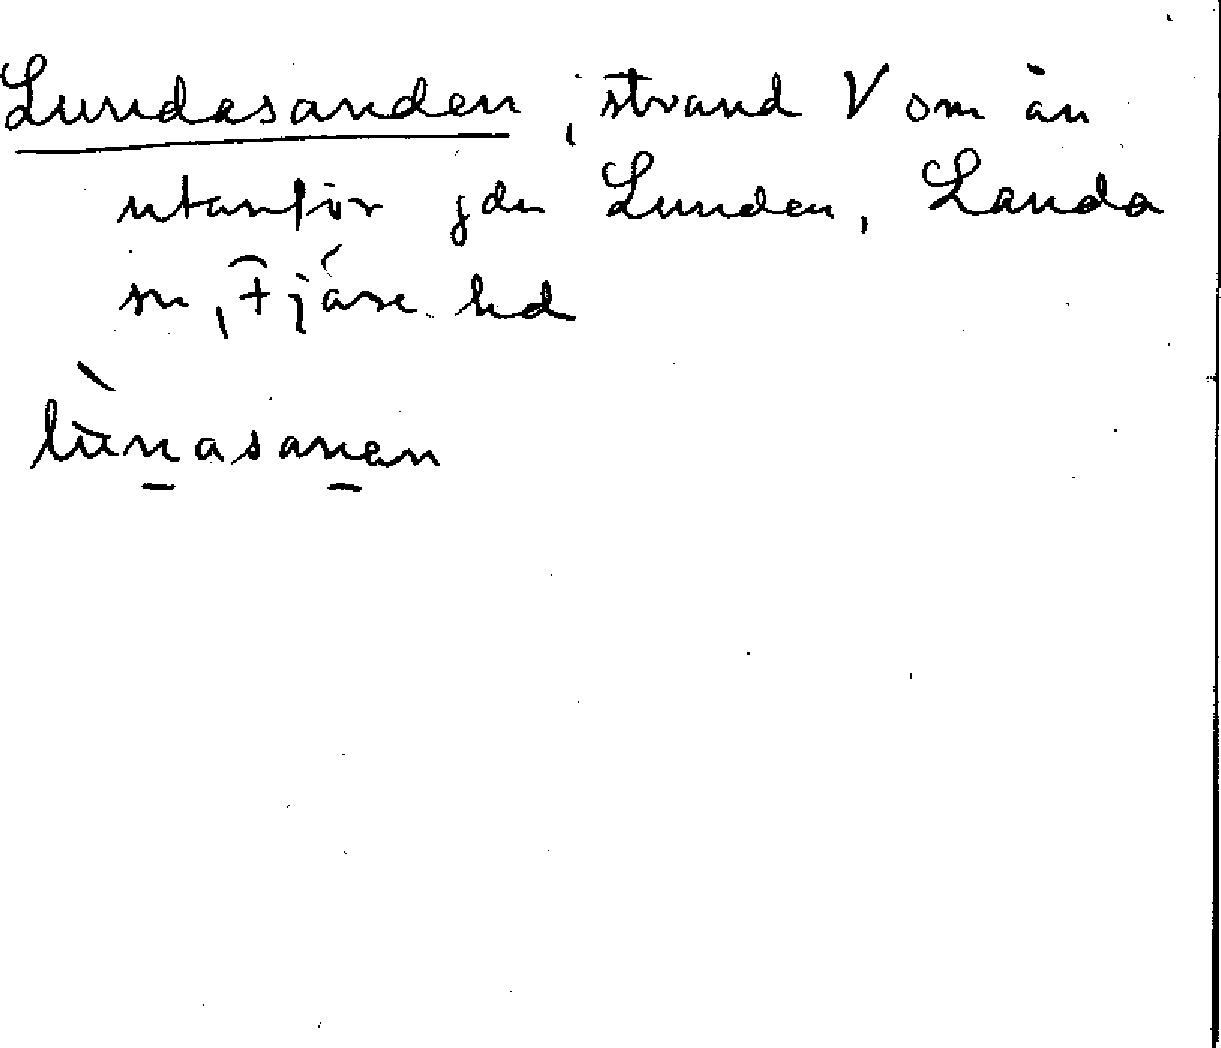 Lundasanden, strand V om ån
utanför gdn Lunden, Landa
sn, Fjäre hd
lùnasanen